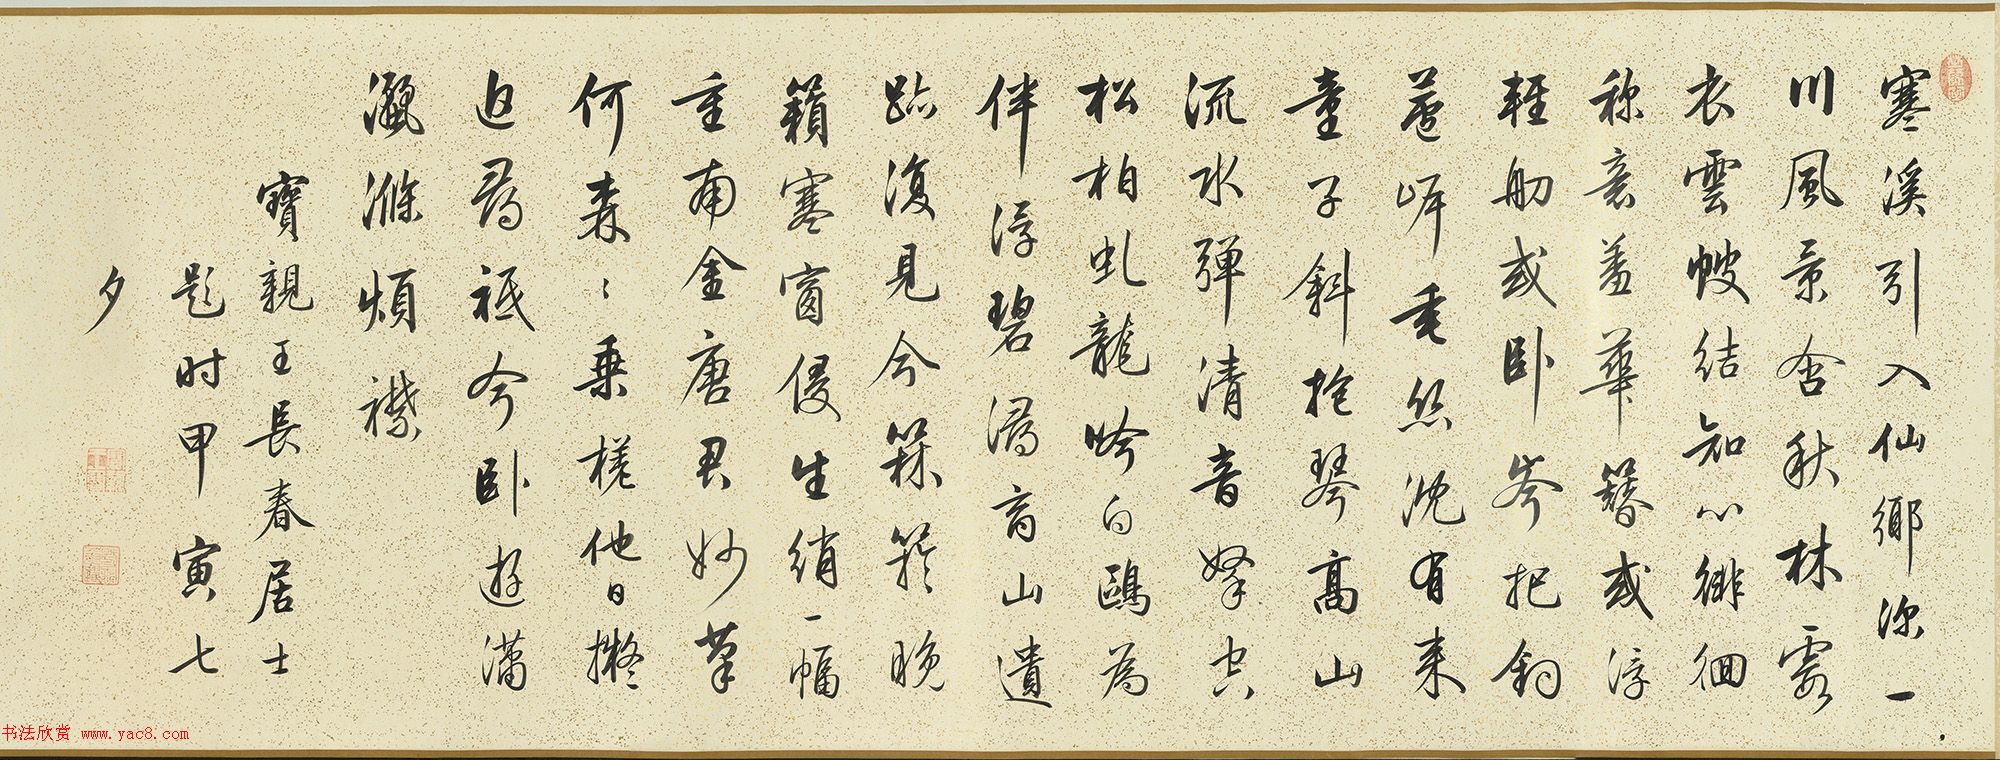 寒溪引入仙鄉深一
川風景含秋林霞
衣雲帔結知心徘徊
稱意羞華簪或浮
輕舠或卧岑把釣
蘆岸垂絲沈有来
童子斜抱琴高山
流水彈清音拏空
松柏虬龍吟白鷗為
伴浮碧潯商山遺
跡復見今箖箊晚
籟寒窗侵生綃一幅
重南金唐君妙筆
何森〻乗槎他日擬
追尋祗今卧遊瀟
灑滌煩襟
寶親王長春居士
題时甲寅七
夕
书法欣赏 www.yac8.com